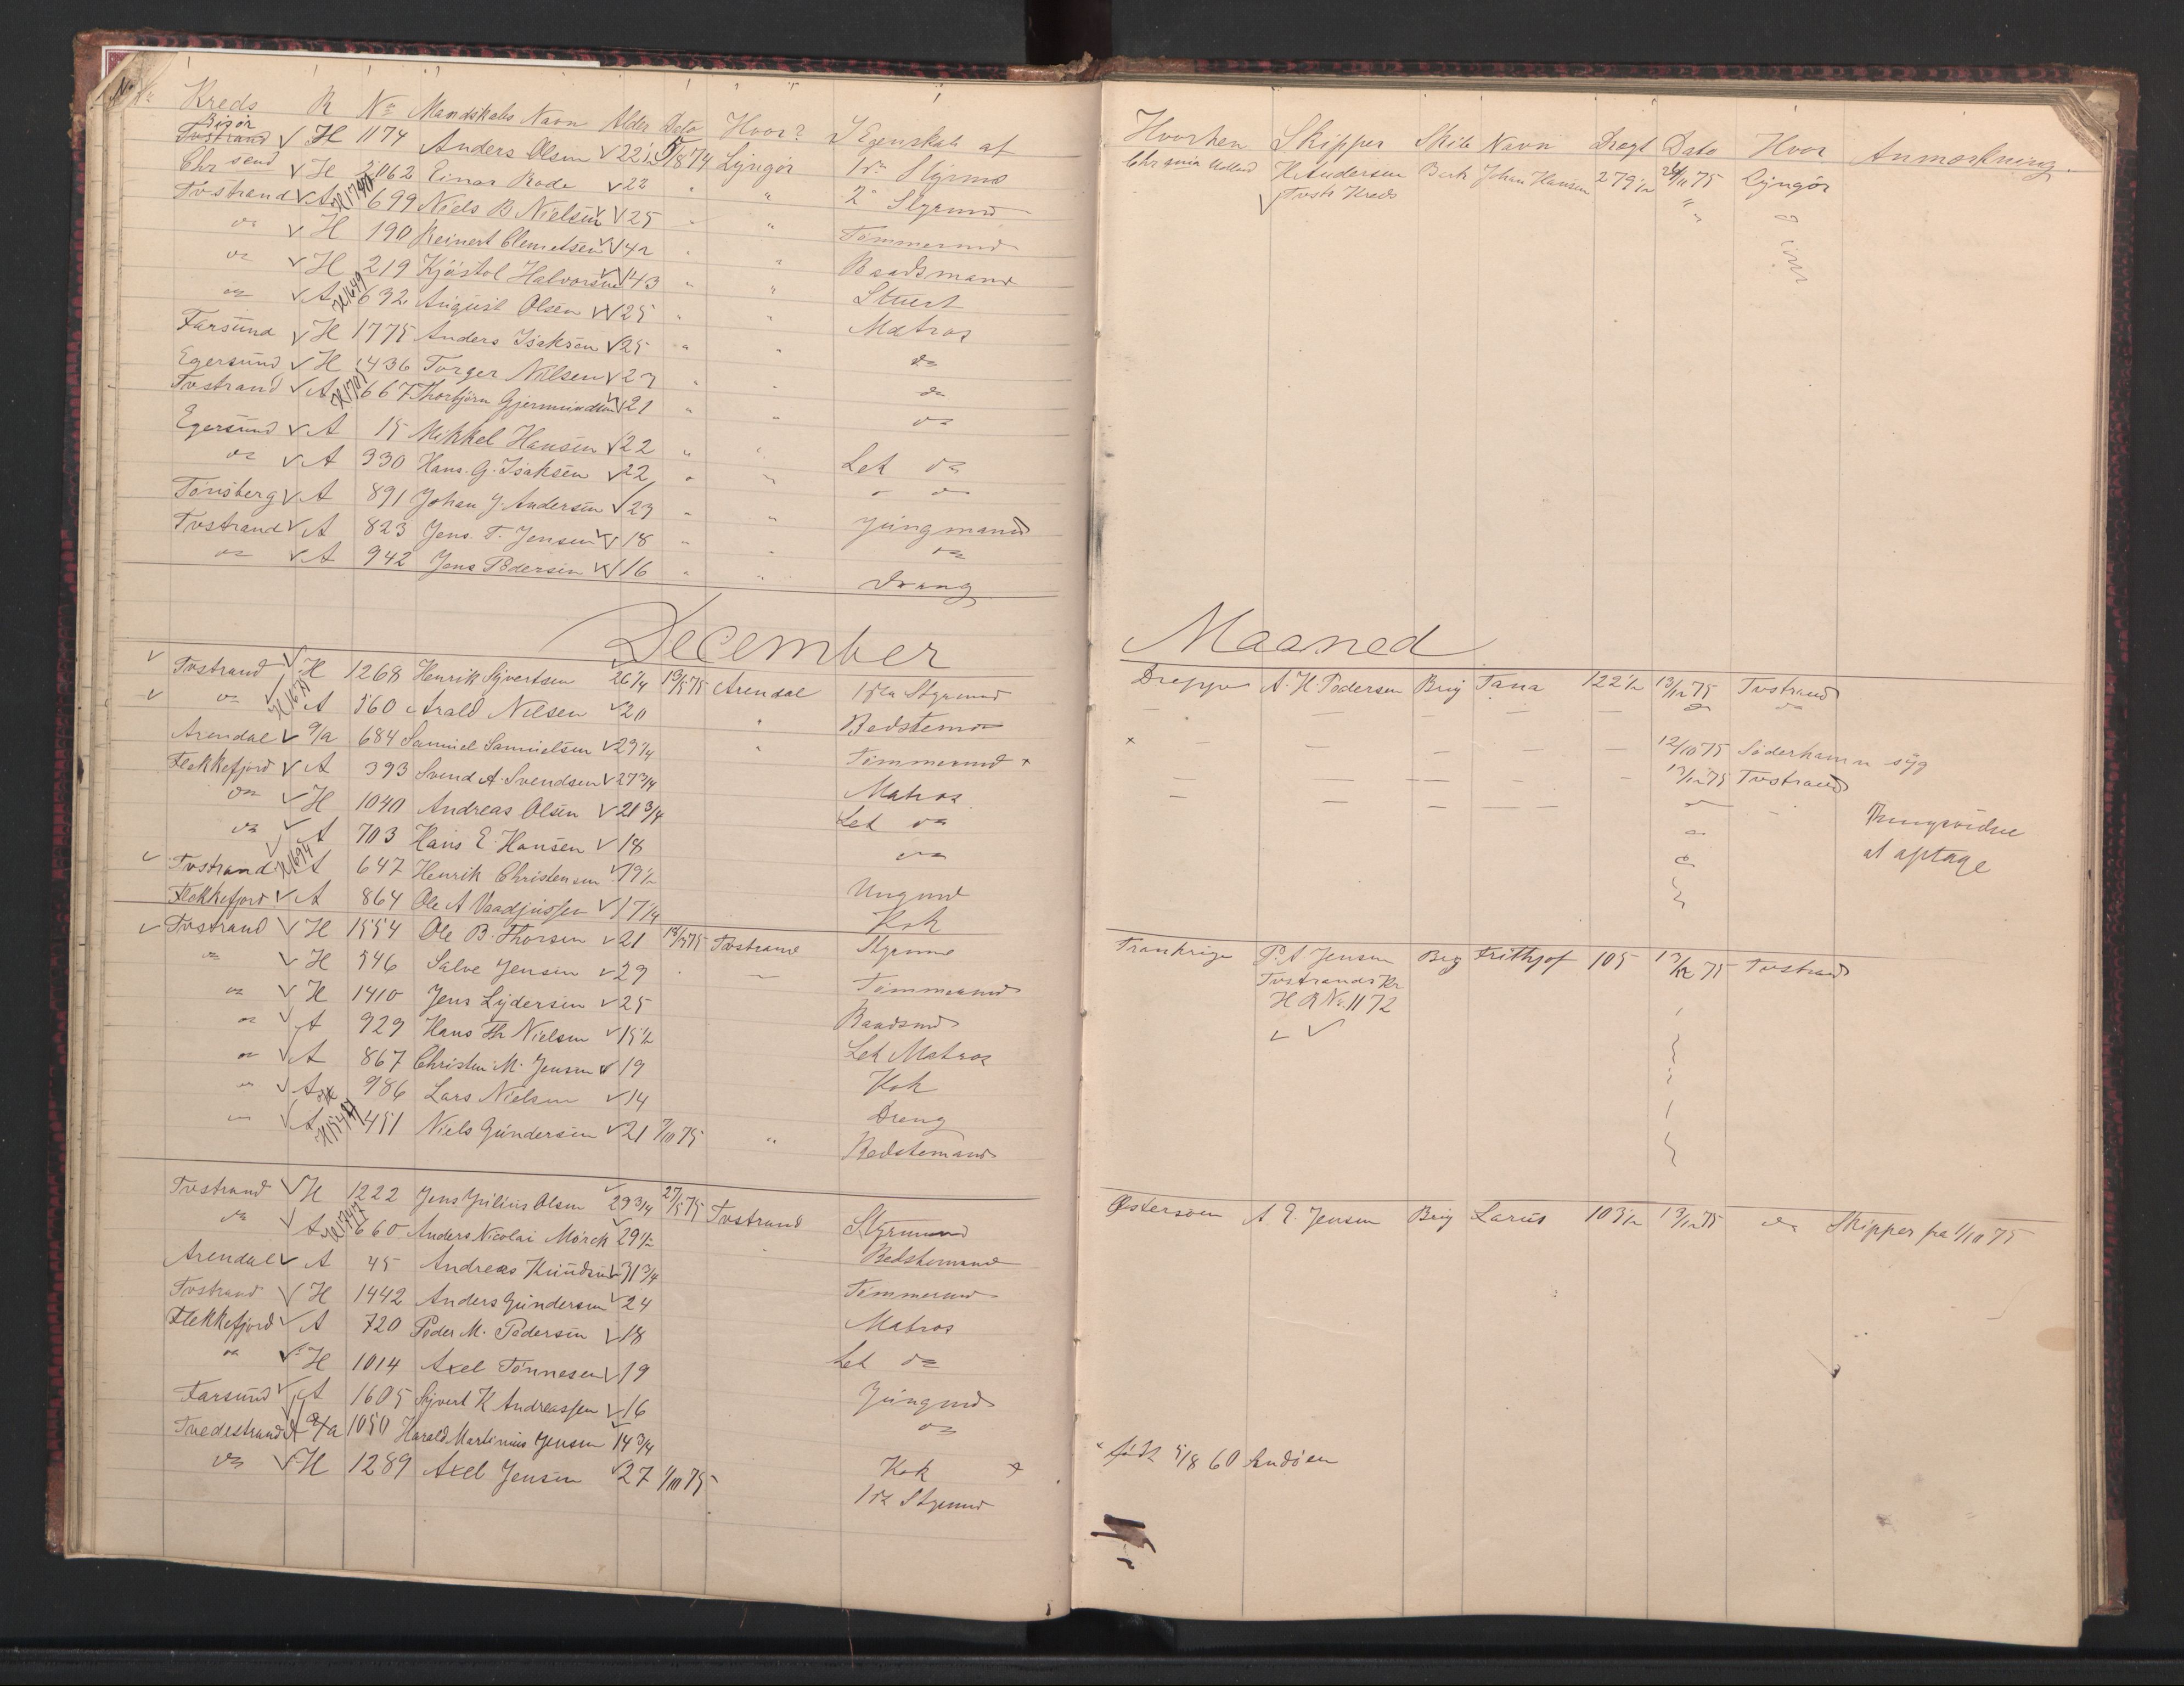 Kreds R No Mandskabs Navn Alder Dato Hvor? I Egenskab af
Risör
Tvstrand H 1174 Anders Olsen 22½ 5/8 74 Lyngör 1ste Styrmd
Chrsand H 2062 Einar Bode 22 " " 2 Styrmd
Tvstrand A 699 Niels B Nielsen 25 " " Tömmermd
do H 190 Reinert Clemetsen 42 " " Baadsmand
do H 219 Kjöstol Halvorsen 43 " " Stuert
do A H1649 632 August Olsen 25 " " Matros
Farsund H 1775 Anders Isaksen 25 " " do
Egersund H 1436 Torger Nilsen 23 " " do
Tvstrand A H1701 667 Thorbjörn Gjermundsen 21 " " do
Egersund A 15 Mikkel Hansen 22 " " Let do
do A 330 Hans. G. Isaksen 22 " " " do
Tönsberg A 891 Johan J Andersen 23 " " Jüngmand
Tvstrand A 823 Jens. T. Jensen 18 " " do
do A 942 Jens Pedersen 16 " " Dreng
December
Tvstrand H 1268 Henrik Syvertsen 26¼ 19/5 75 Arendal 1ste Styrmd
do H1675 A 560 Arald Nilsen 20 " Bedstemd
Arendal 9/a 684 Samuel Samuelsen 29¼ " Tömmermd x
Flekkefjord A 393 Svend A. Svendsen 27¾ Matros
do H 1040 Andreas Olsen 21¾ Let do
do A 703 Hans E. Hansen 18 do
Tvstrand H1694 A 647 Henrik Christensen 19½ Ungmd
Flekkefjord A 864 Ole A Vaadjuissen 17¼ Kok
Tvstrand H 1554 Ole B. Thorsen 21 18/5 75 Tvstrand Styrmd
do H 546 Salve Jensen 29 Tömmermd
do H 1410 Jens Lydersen 25 Baadsmd
do A 929 Hans Th Nielsen 15½ Let Matros
do A 867 Christen M. Jensen 19 Kok
do A 986 Lars Nielsen 14 Dreng
do A 451 Niels Gundersen 21 7/10 75 " Bedstemand
Tvstrand H 1222 Jens Julius Olsen 29¾ 27/5 75 Tvstrand Styrmand
do A H1747 660 Anders Nicolai Mörch 29½ Bedstemand
Arendal A 45 Andreas Knudsen 31¾ Tömmermd
Tvstrand H 1442 Anders Gundersen 24 Matros
Flekkefjord A 720 Peder M. Pedersen 18 Let do
do H 1014 Axel Tönnesen 19 Jüngmd
Farsund A 1605 Syvert K Andreassen 16 do
Tvedestrand 9/a 1050 Harald Martinius Jensen 14¾ Kok x
do H 1289 Axel Jensen 27 1/10 75 1ste Styrmd
Hvorhen Skipper Skibs Navn Drægt Dato Hvor Anmærkning
H Andersen Bark Johan Hansen 279½ 26/11 75 Lyngör
Tvstr Kreds
Maaned
Dieppe A. H. Pedersen Brig Tana 122½ 13/12 75 Tvstrand
x 12/10 75 Söderhamn syg
13/12 75 Tvstrand
at aptage
Frankrige P. A Jensen Brig Frithjof 105 13/12 75 Tvstrand
Tvstrands Kr
H R No. 1172
Østersöen A. E. Jensen Brig Larus 103½ 13/12 75 do Skipper fra 1/10 75
x födt 5/8 60